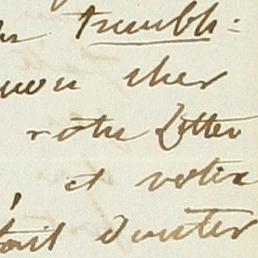 trembl-:
mon cher
votre Lettre
, et votre
fait douter